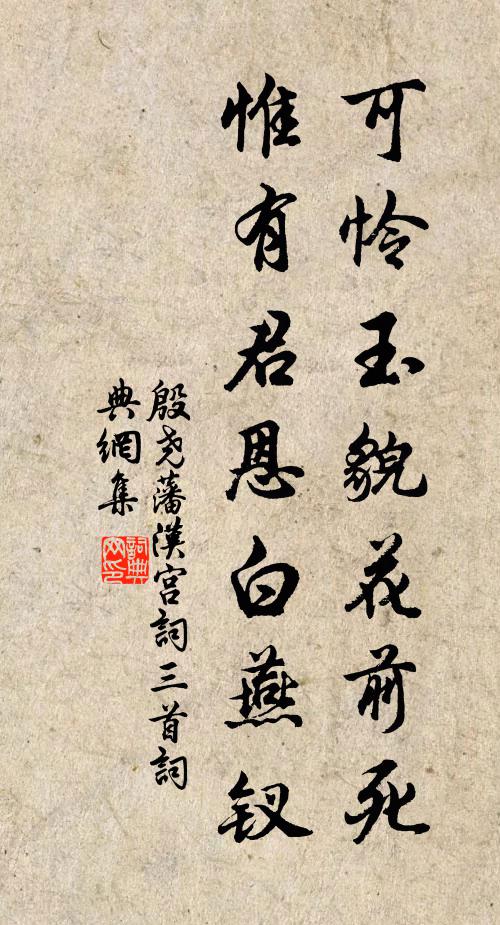 可怜玉貌花前死
惟有君恩白燕钗
殷尧藩漢宫詞三首詞
典網集
詞典
网印